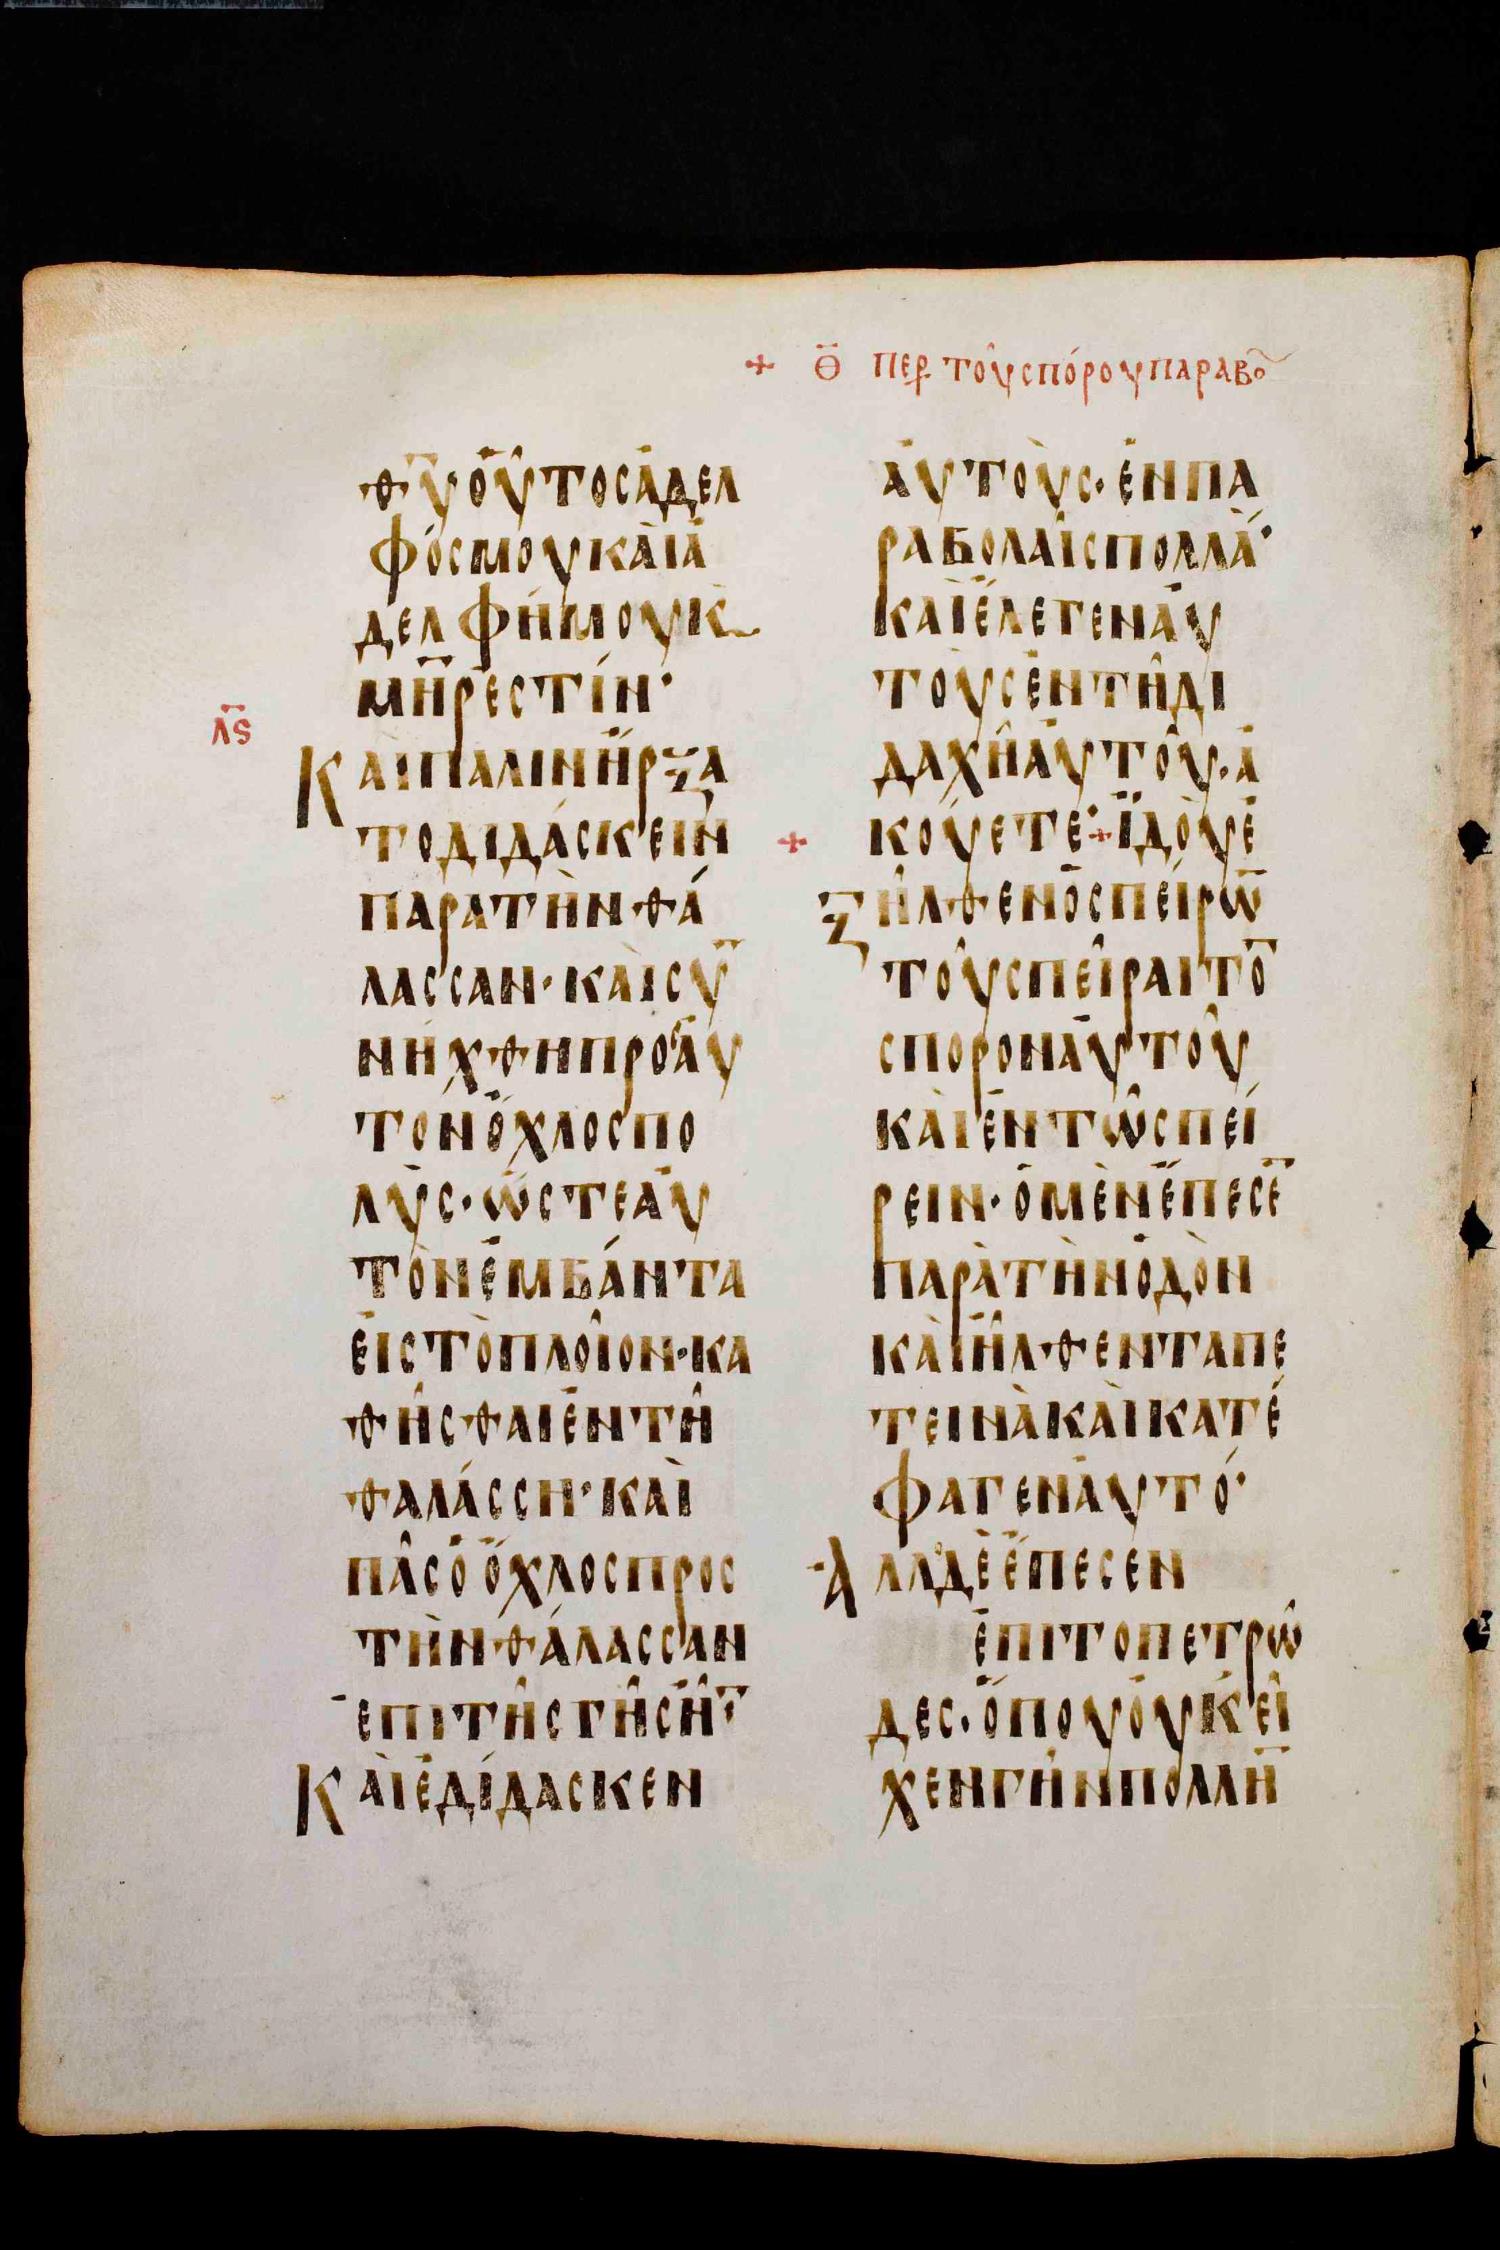 + Θ ΠΕΡ ΤΟῦ ΣΠόΡΟΥ ΠΑΡΑΒο
ΘΥ ΟὗΤΟΣ ἀΔΕΛ
ΦόΣ ΜΟΥ ΚΑὶ ἀ
ΔΕΛΦή ΜΟΥ Κ
ΜΗΡ ἐΣΤίΝ·
ΛϚ
ΚΑὶ ΠΑΛΙΝ ἤΡΞΑ
ΤΟ ΔΙΔάΣΚΕΙΝ
ΠΑΡΑ ΤὴΝ ΘΆ
ΛΑΣΣΑΝ· ΚΑὶ ΣΥ
ΝήΧΘΗ ΠΡΟσ ἀΥ
ΤΟΝ ὄΧΛΟΣ ΠΟ
ΛὺΣ· ὥΣΤΕ ἀΥ
ΤὸΝ ἐΜΒάΝΤΑ
ἐΙΣ Τὸ ΠΛΟῖΟΝ· ΚΑ
ΘῆΣΘΑΙ ἐΝ Τῆ
ΘΑΛάΣΣΗ· ΚΑὶ
ΠᾶΣ ὁ ὄΧΛΟΣ ΠΡΟΣ
ΤὴΝ ΘάΛΑΣΣΑΝ
ἐΠΙ ΤῆΣ ΓῆΣ ἦΝ
ΚΑὶ ἐΔίΔΑΣΚΕΝ
ἀΥΤΟὺΣ· ἐΝ ΠΑ
ΡΑΒΟΛΑῖΣ ΠΟΛΛά·
ΚΑὶ ἔΛΕΓΕΝ ἀΥ
ΤΟὺΣ ἐΝ Τῆ ΔΙ
ΔΑΧῆ ἀΥΤΟῦ· ἀ
+ ΚΟύΕΤΕ· + ἰΔΟὺ ἐ
ΞῆΛΘΕΝ ὁ ΣΠΕίΡΩ
ΤΟῦ ΣΠΕῖΡΑΙ ΤΟ
ΣΠΟΡΟΝ ἀΥΤΟῦ
ΚΑὶ ἐΝ Τῶ ΣΠΕί
ΡΕΙΝ· ὁ ΜὲΝ ἔΠΕΣΕ
ΠΑΡὰ ΤὴΝ ὁΔὸΝ
ΚΑὶ ἦΛΘΕΝ ΤΑ ΠΕ
ΤΕΙΝὰ ΚΑὶ ΚΑΤέ
ΦΑΓΕΝ ἀΥΤό·
ἈΛΛΟ Δὲ ἔΠΕΣΕΝ
ἐΠΙ ΤΟ ΠΕΤΡῶ
ΔΕΣ· ὅΠΟΥ ΟὐΚ Εἶ
ΧΕΝ ΓῆΝ ΠΟΛΛὴ